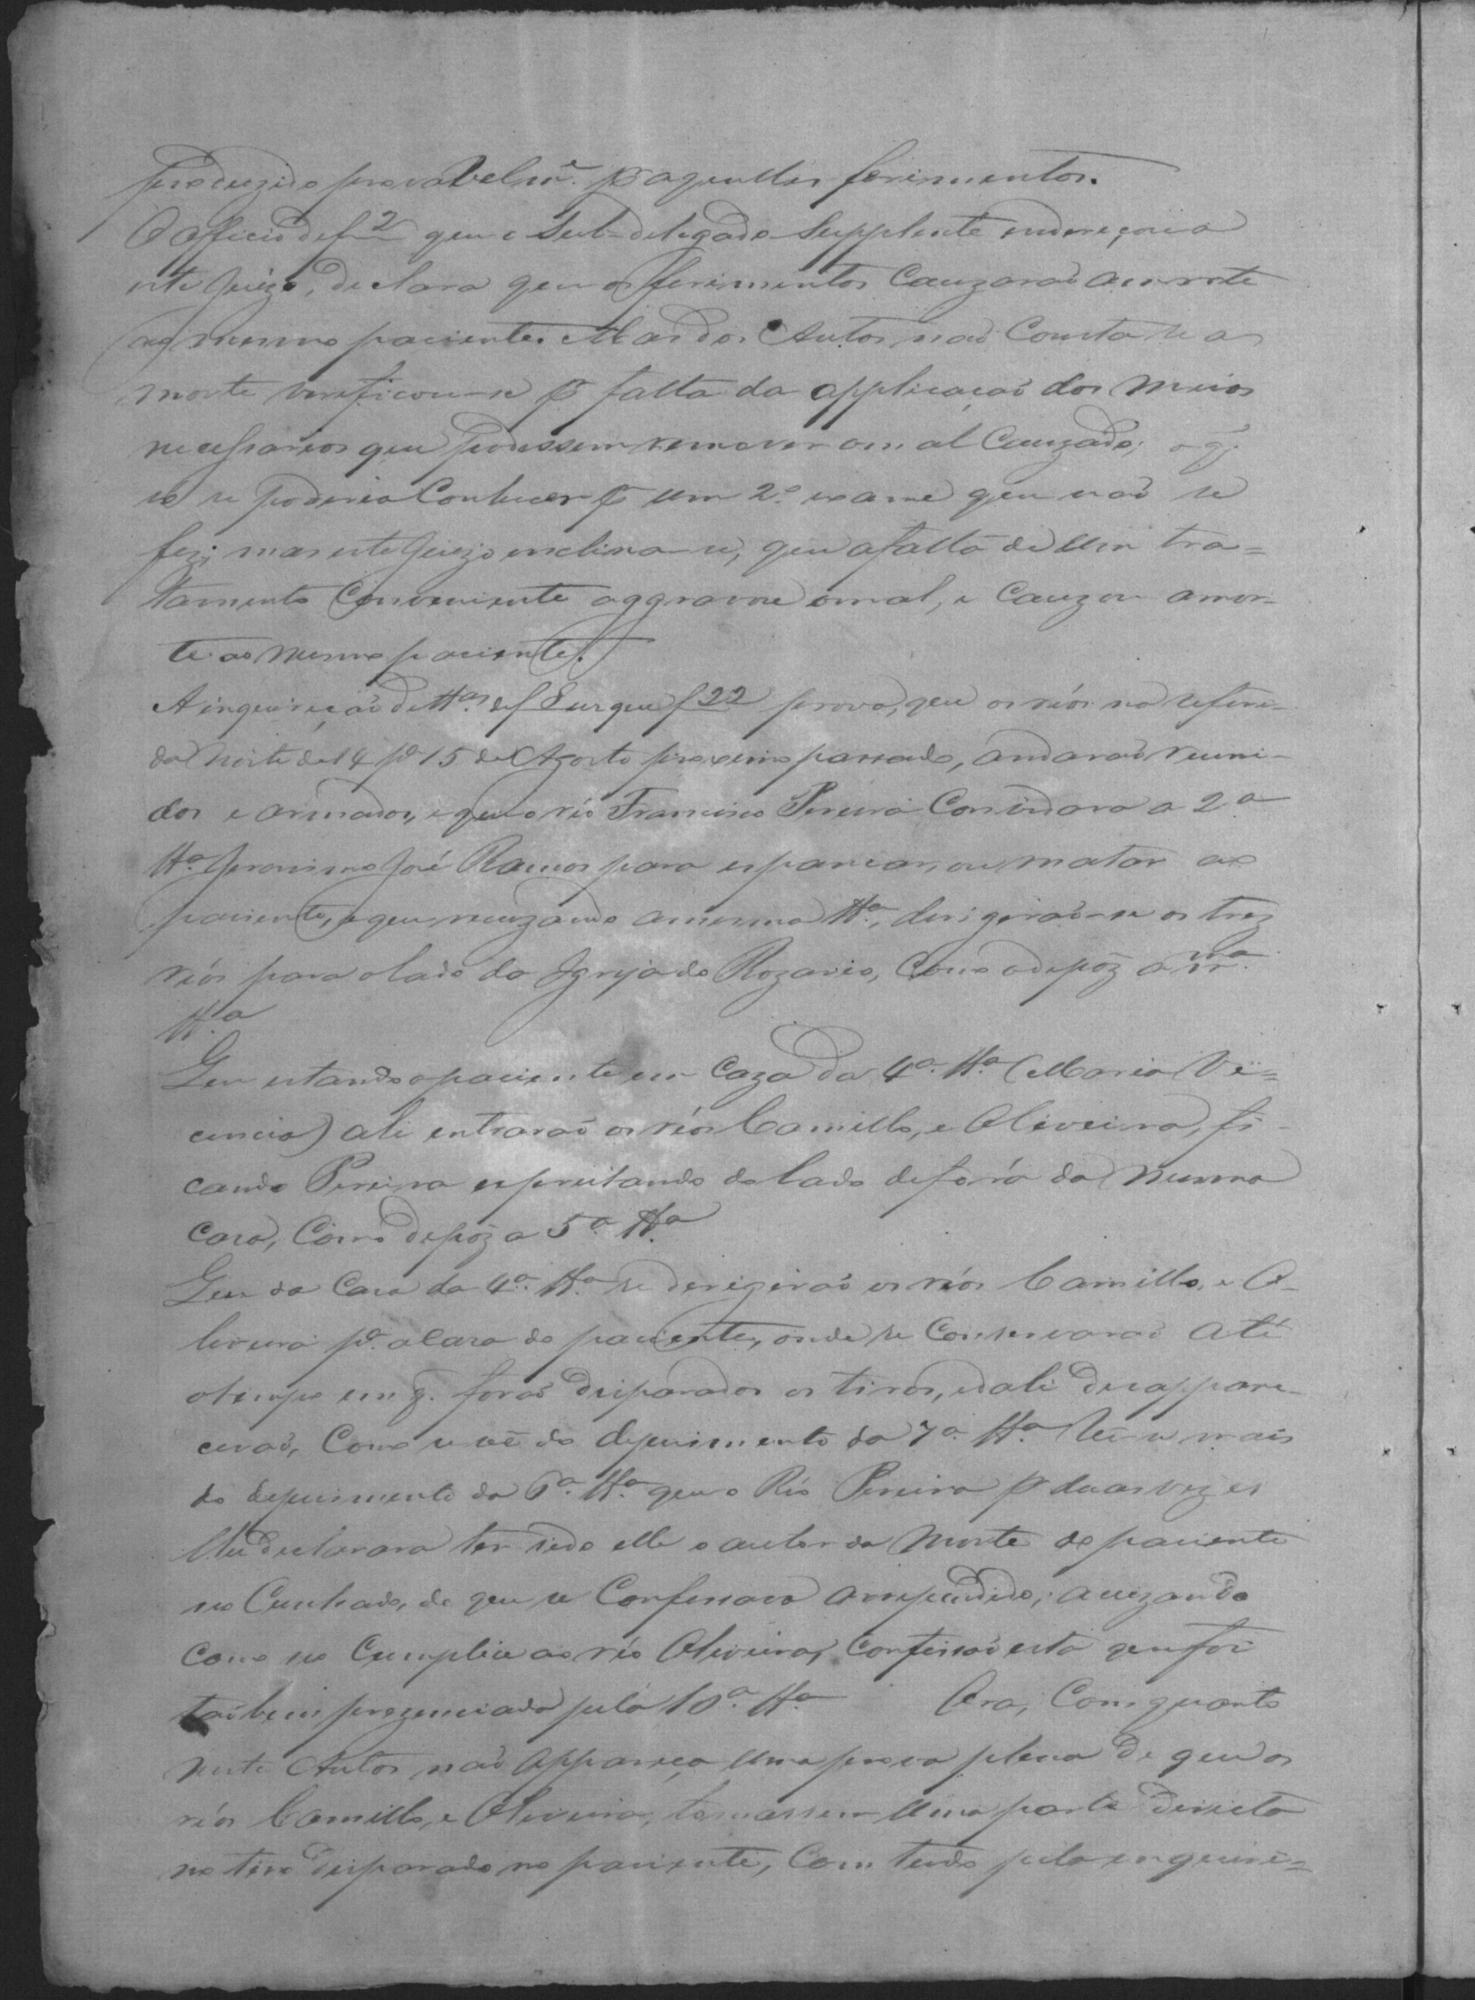 produzido provavelme. pr aquelles ferimentos.
O officio de f 2 que o Sub-delegado Supplente endereçou a
este Juizo, declara que os ferimentos Cauzarão a morte
ao mesmo paciente. Mas dos Autos não Consta se a
morte verificou-se pr falta da applicação dos meios
necessarios que podessem remover o mal Cauzado; o q.
só se poderia Conhecer pr um 2.º exame que não se
fez; mas este Juizo inclina-se, que a falta de um tra=
tamento Conveniente aggravou o mal, e Cauzou a mor-
te ao mesmo paciente.
A inquirição de ttas. de f 8 usque f 22 prova, que os réos na referi-
da noite de 14 pa. 15 de Agosto proximo passado, andarão reuni-
dos e armados, e que o réo Francisco Pereira Convidara a 2.a
tta. Jeronimo José Ramos para espancar, ou matar ao
paciente, e que recuzando a mesma tta., derigirão-se os trez
réos para o lado da Igreja do Rozario, Como o depôz a ma.
tt.a
Que estando o paciente em Caza da 4.a tta. (Maria Vi=
cencia) ali entrarão os réos Camillo, e Oliveira, fi-
cando Pereira espreitando do lado de fóra da mesma
Casa, Como depôz a 5.a tt.a
Que da Casa da 4.a tta. se derigirão os réos Camillo, e O-
liveira pa. a Casa do paciente, onde se Conservarão até
o tempo em q. forão disparados os tiros, e dali desappare-
cerão, Como se vê do depoimento da 7.a tta. Vê-se mais
do depoimento da 6.a tta. que o Réo Pereira pr duas vezes
lhe declarara ter sido elle o autor da morte do paciente
seo Cunhado, de que se Confessava arrependido; acuzando
como seo Cumplice ao réo Oliveira, Confissão esta que foi
tãobem prezenciada pela 10.a tta. Ora, Com quanto
neste Autos não appareça uma prova plena de que os
réos Camillo, e Oliveira, tomassem uma parte directa
no tiro disparado no paciente, Com tudo pela inquiri=